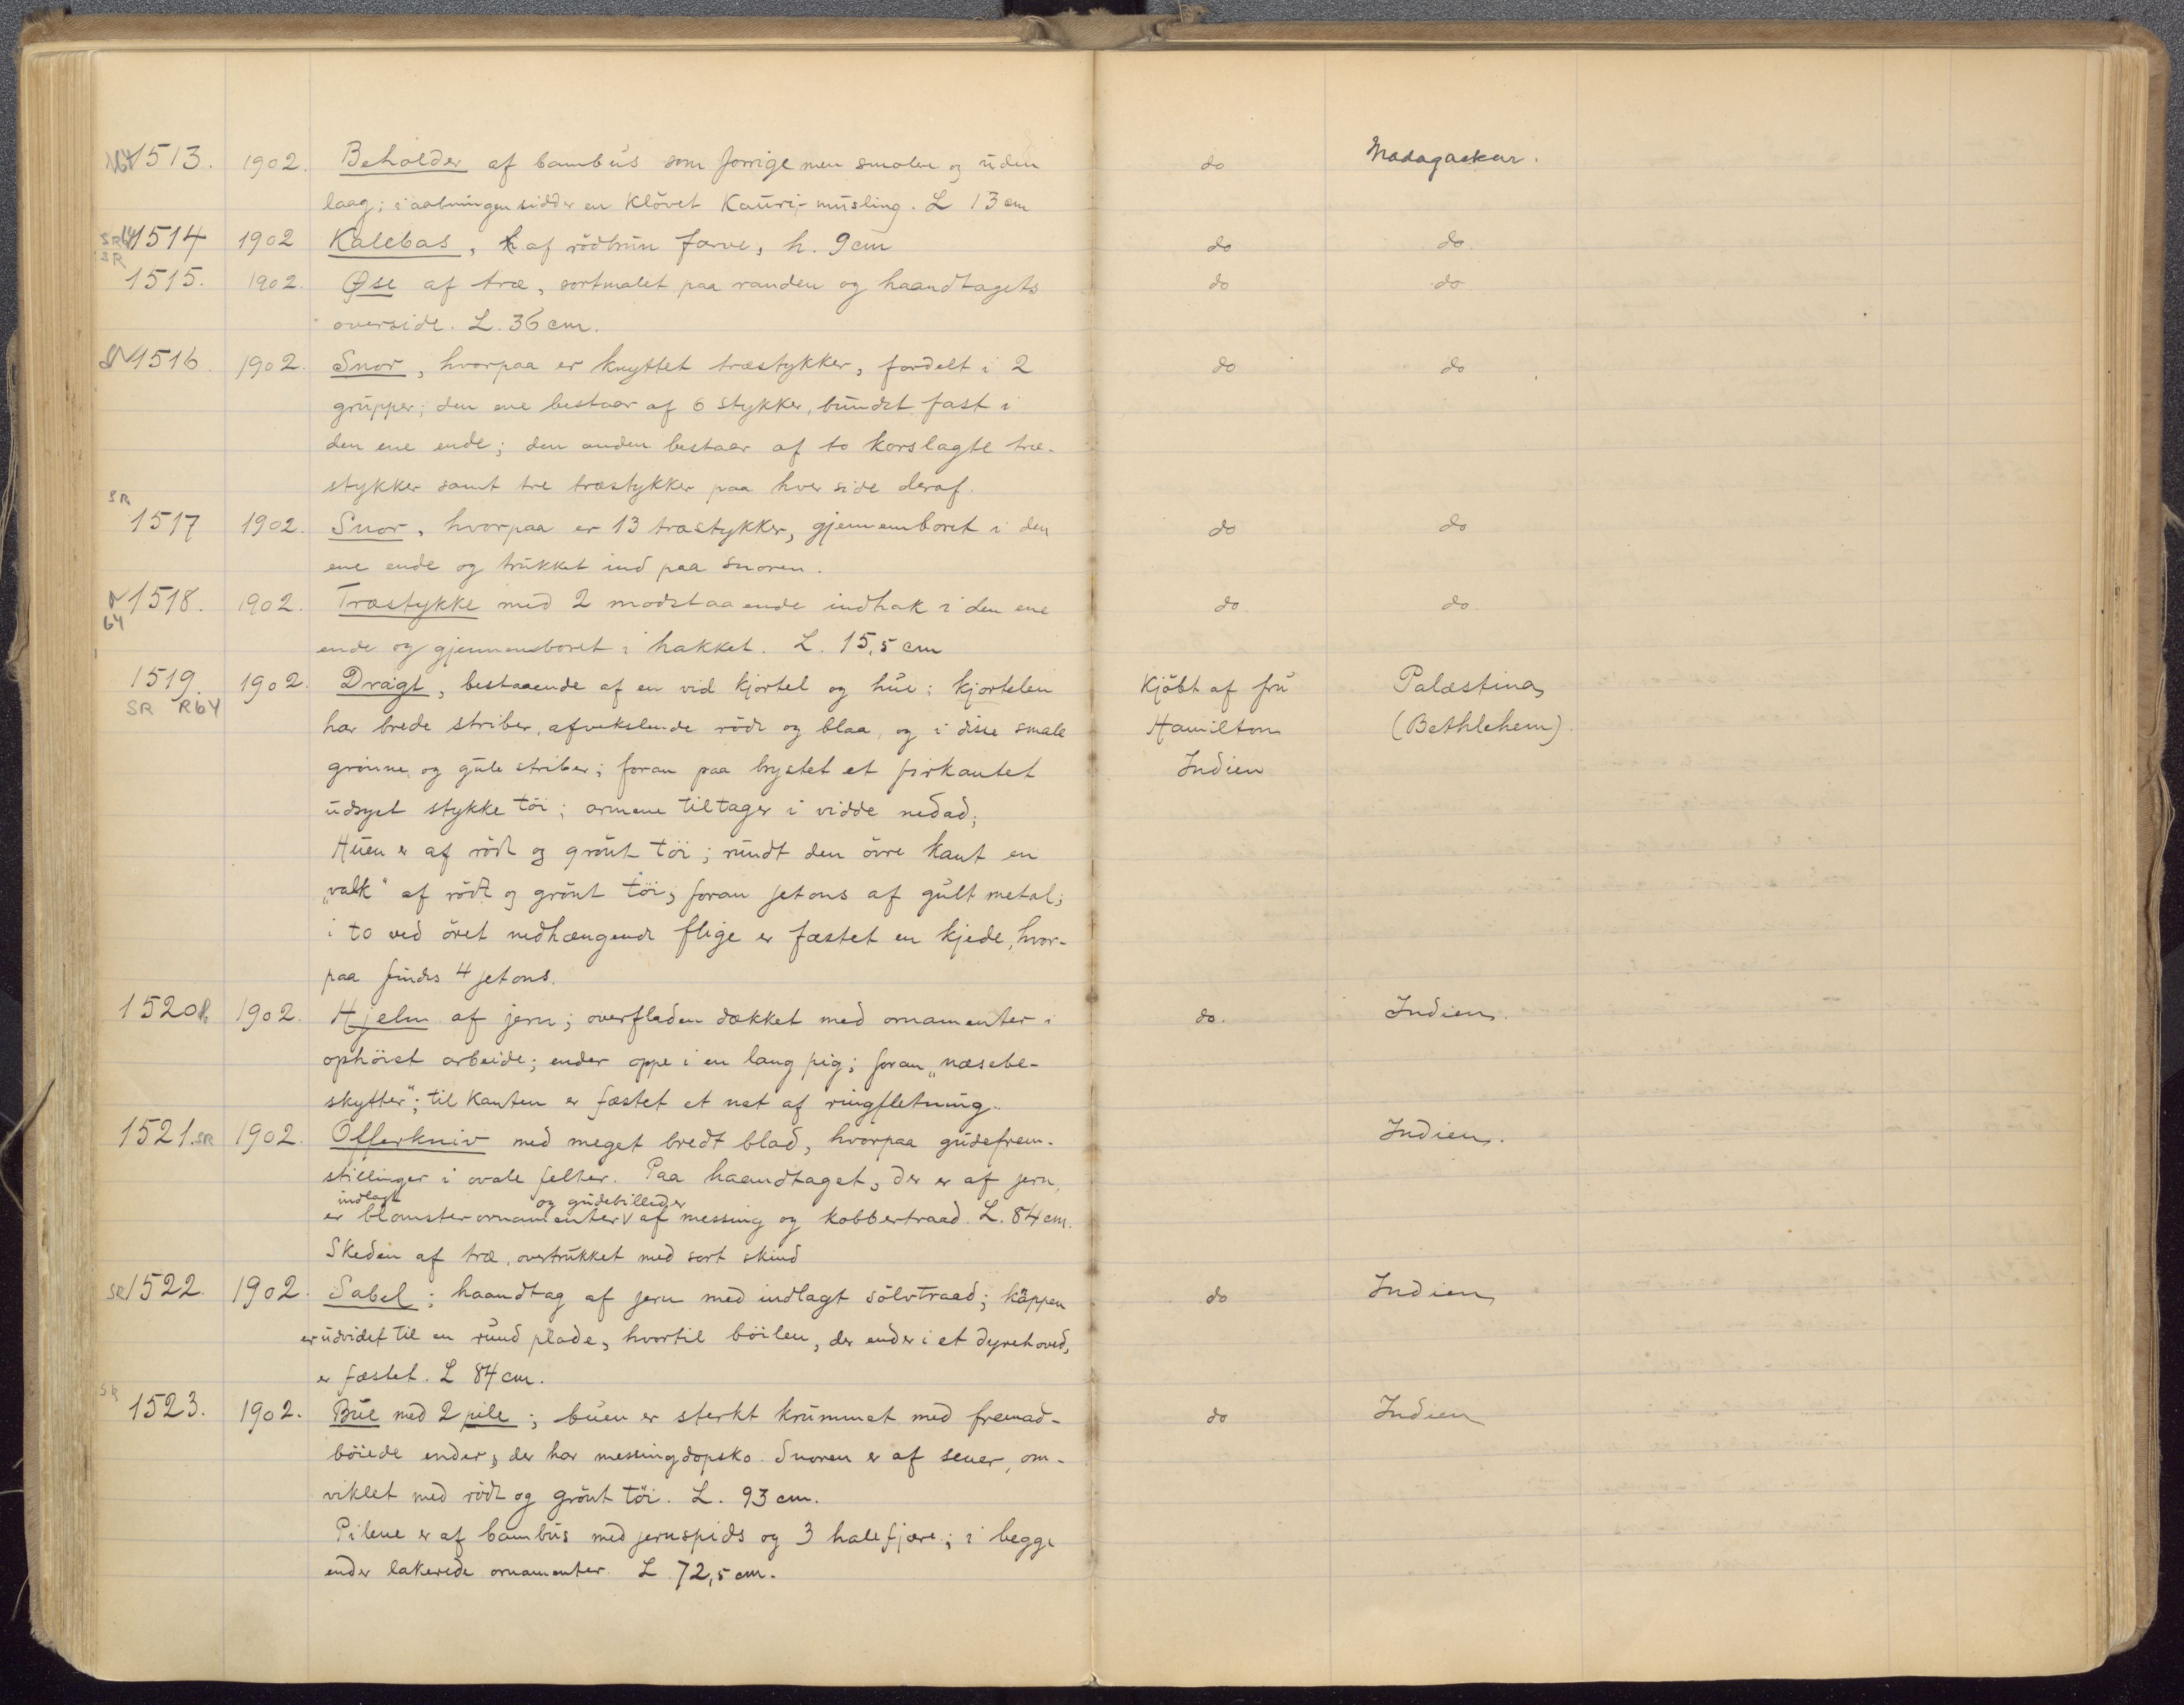 1513. 1902. Beholder af bambus som forrige men smalere og uden do Madagaskar.
laag; i aabningen sidder en kløvet Kauri-musling. L 13 cm
SR 1514 1902 Kalebas, af rödbrun farve, h. 9 cm do do
SR
1515. 1902. Øse af træ, sortmalet paa randen og haandtagets do do
overside. L. 36 cm.
1516. 1902. Snor, hvorpaa er knyttet træstykker, fordelt i 2 do do
grupper; den ene bestaar af 6 stykker, bundet fast i
den ene ende; den anden bestaar af to korslagte træ-
stykker samt tre træstykker paa hver side deraf.
SR
1517 1902. Snor, hvorpaa er 13 træstykker, gjennemboret i den do do
ene ende og trukket ind paa snoren.
1518. 1902. Træstykke med 2 modstaaende indhak i den ene do do
64
ende og gjennemboret i hakket. L. 15,5 cm
1519. 1902. Dragt, bestaaende af en vid kjortel og hue; kjortelen Kjöbt af fru Palæstina,
SR R64 har brede striber, afvekslende röde og blaa, og i disse smale Hamilton (Bethlehem).
grönne og gule striber; foran paa brystet et firkantet Indien
udsyet stykke töi; ermene tiltager i vidde nedad;
Huen er af rödt og grönt töi; rundt den övre kant en
„valk“ af rödt og grönt töi, foran jetons af gult metal;
i to ved öret nedhængende flige er fæstet en kjede, hvor-
paa findes 4 jetons.
1520 R 1902. Hjelm af jern; overfladen dækket med ornamenter i do. Indien.
ophöiet arbeide; ender oppe i en lang pig; foran „næsebe-
skytter“; til kanten er fæstet et net af ringfletning.
1521. SR 1902. Offerkniv med meget bredt blad, hvorpaa gudefrem- Indien.
stillinger i ovale felter. Paa haandtaget, der er af jern,
indlagt og gudebilleder
er blomsterornamenter af messing og kobbertraad. L. 84 cm.
Skeden af træ, overtrukket med sort skind
SR 1522. 1902. Sabel; haandtag af jern med indlagt sölvtraad; kappen do Indien
er udvidet til en rund plade, hvortil böilen, der ender i et dyrehoved,
er fæstet. L 84 cm.
SR
1523. 1902. Bue med 2 pile; buen er sterkt krummet med fremad- do Indien
böiede ender, der har messingdopsko. Snoren er af sener, om-
viklet med rödt og grönt töi. L. 93 cm.
Pilene er af bambus med jernspids og 3 halefjære; i begge
ender lakerede ornamenter. L. 72,5 cm.